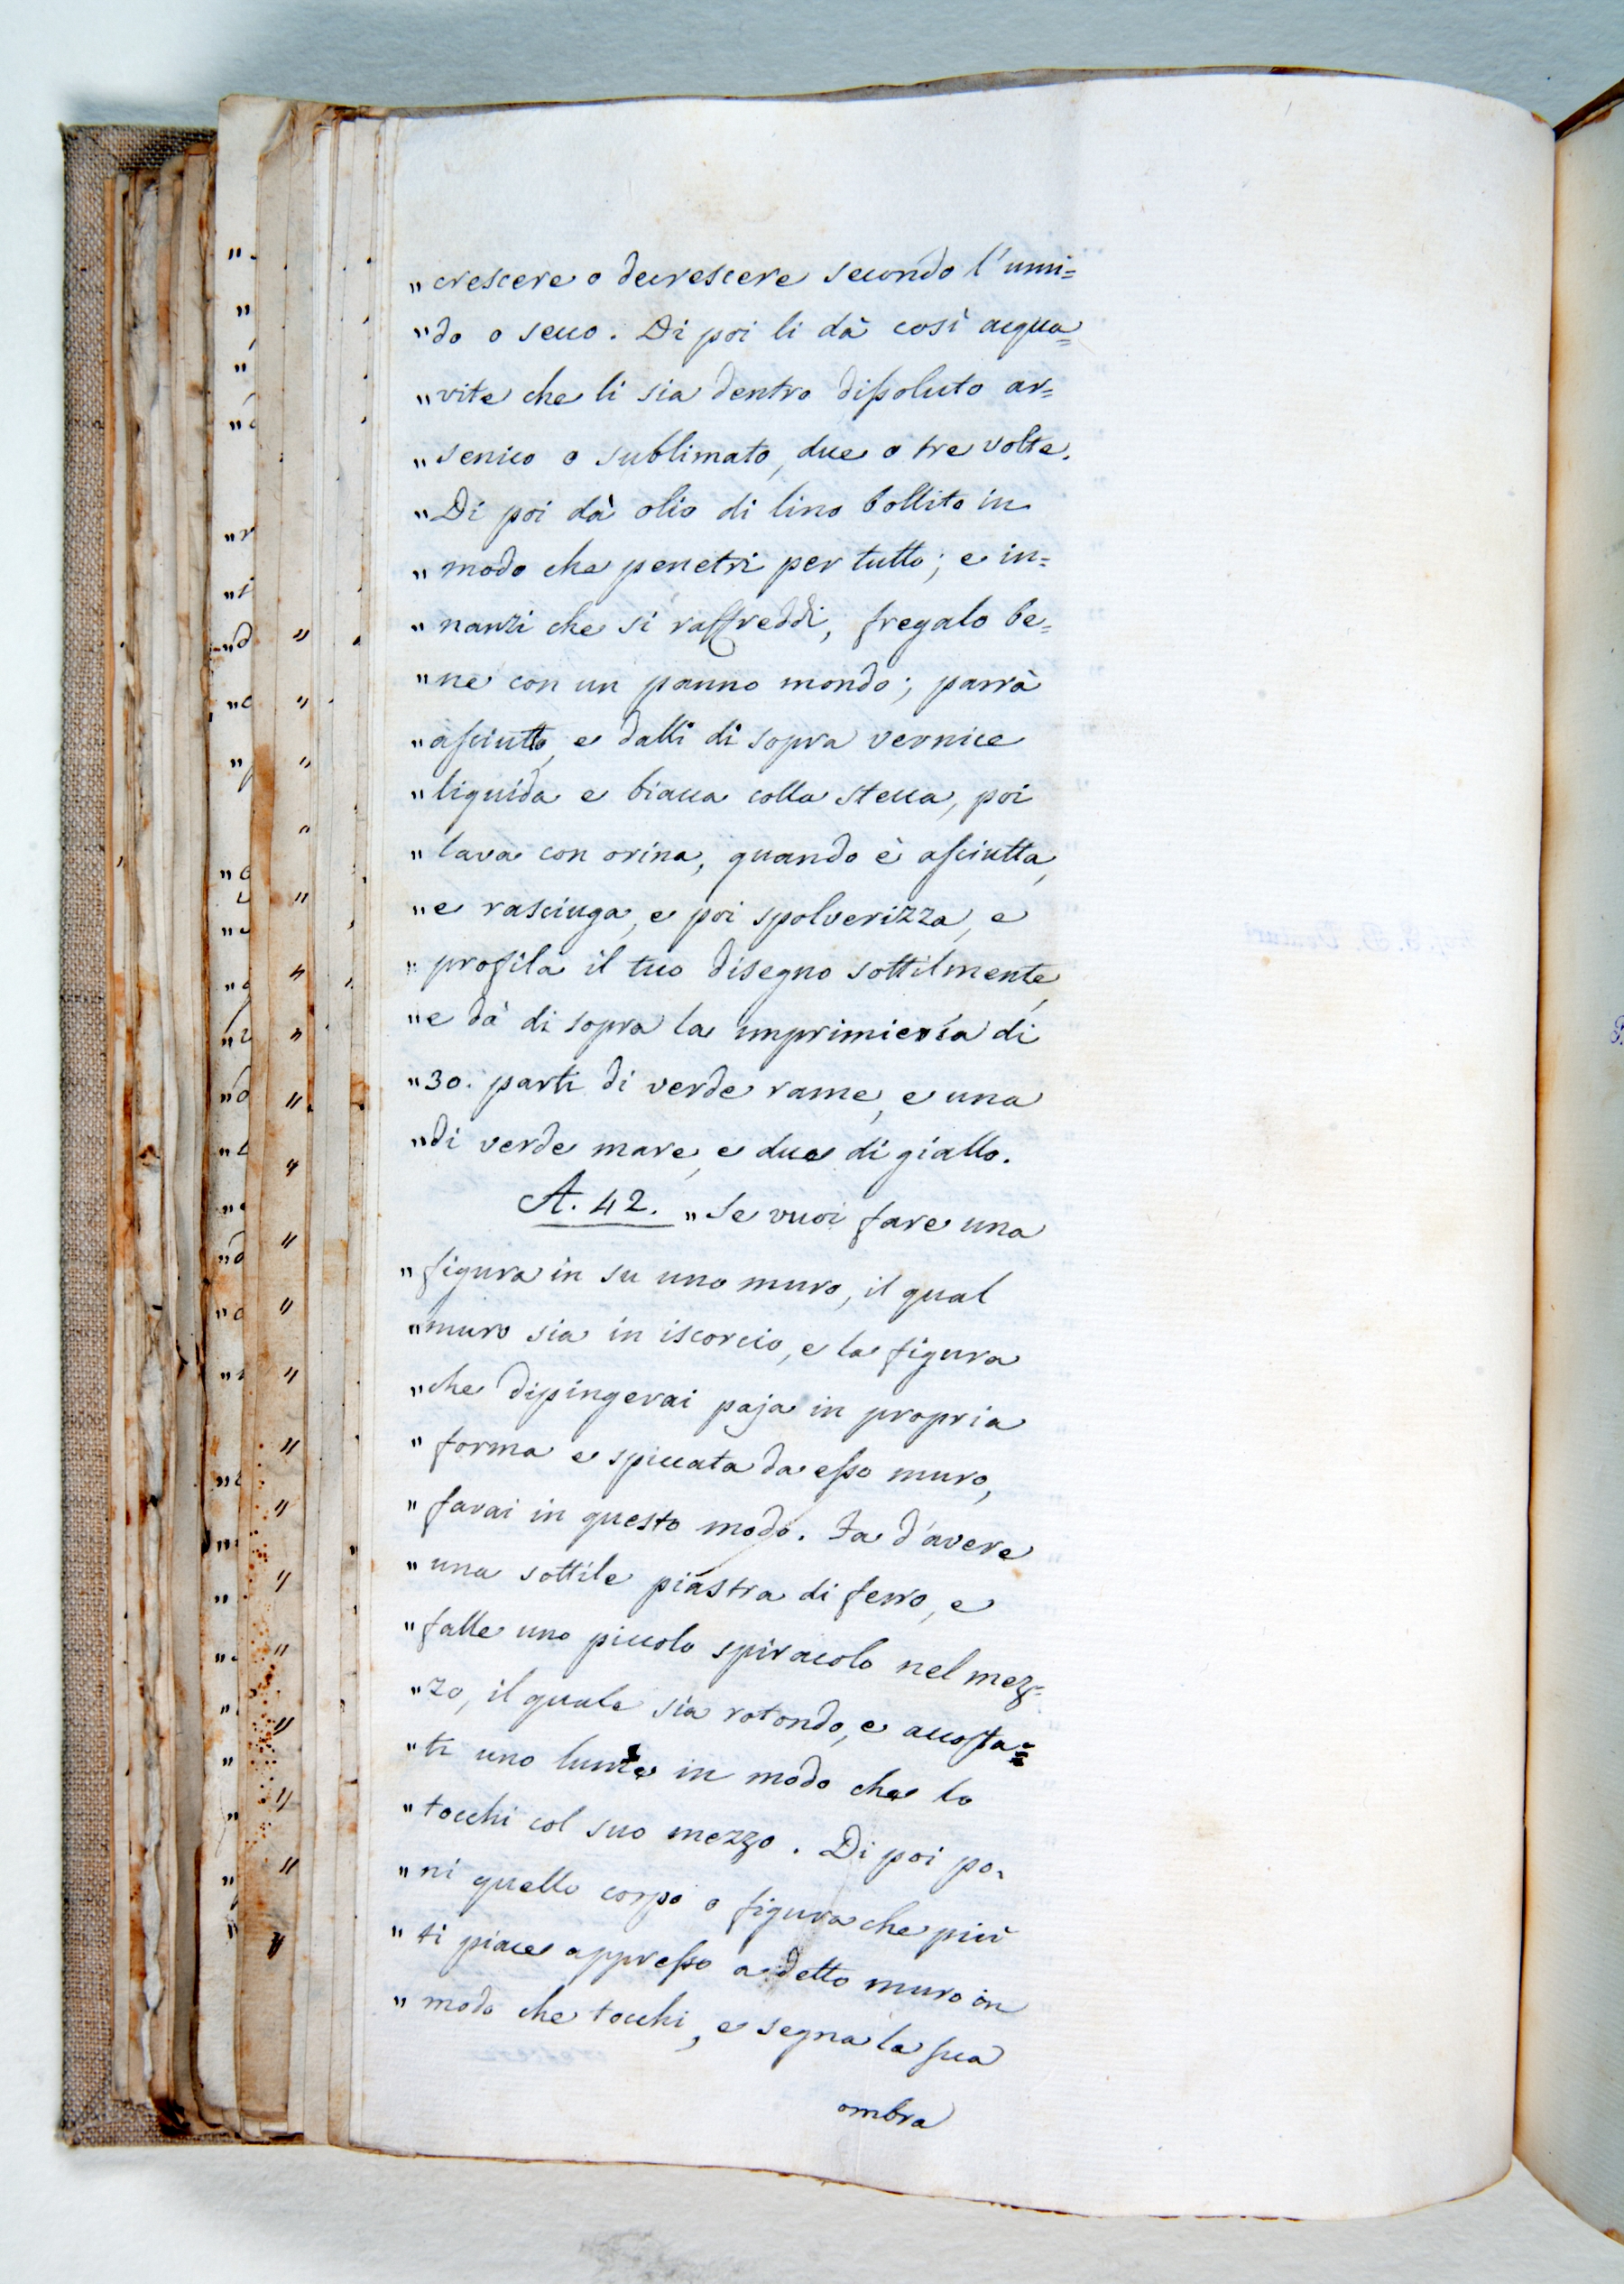 „crescere o decrescere secondo l'umi=
„do o secco. Di poi li dà così acqua=
„vite che li sia dentro dissoluto ar=
„senico o sublimato, due o tre volte.
„Di poi dà olio di lino bollito in
„modo che penetri per tutto; e in=
„nanzi che si raffreddi, fregalo be=
„ne con un panno mondo; parrà
„asciutto, e dalli di sopra vernice
„liquida e biacca colla stecca, poi
„lava con orina, quando è asciutta,
„e rasciuga, e poi spolverizza, e
„profila il tuo disegno sottilmente,
„e dà di sopra la imprimieria di
„30. parti di verde rame, e una
„di verde mare, e due di giallo.
A. 42. „Se vuoi fare una
„figura in su uno muro, il qual
„muro sia in iscorcio, e la figura
„che dipingerai paja in propria
„forma e spiccata da esso muro,
„farai in questo modo. Fa d'avere
„una sottile piastra di ferro, e
„falle uno piccolo spiracolo nel mez=
„zo, il quale sia rotondo, e accosta=
„ti uno lume in modo che lo
„tocchi col suo mezzo. Di poi po=
„ni quello corpo o figura che più
„ti piace appresso a detto muro in
„modo che tocchi, e segna la sua
ombra